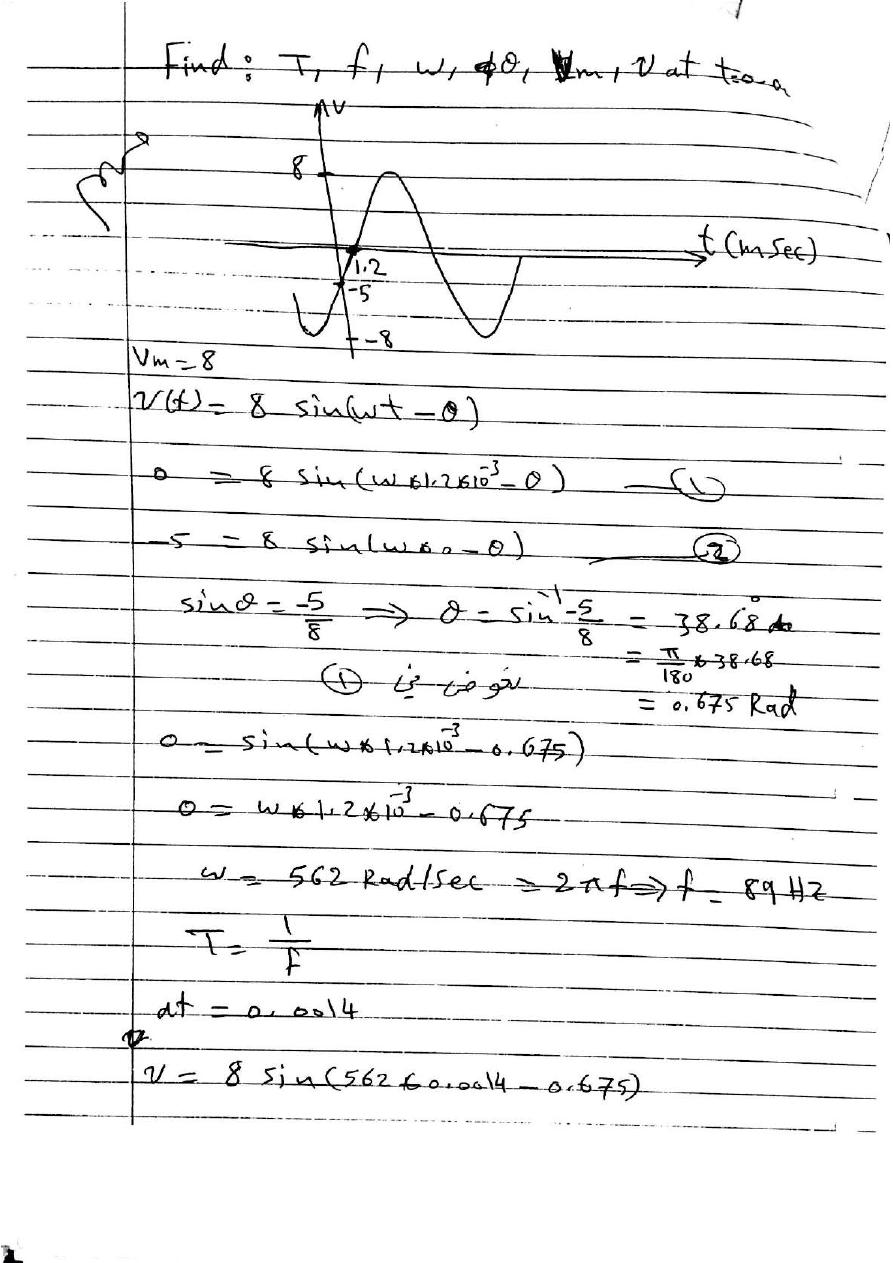 Find: T, f, w, θ, Vm, V at
V
8
t (m sec)
1.2
-5
-8
Vm = 8
V(t) = 8 sin(wt - θ)
0 = 8 sin(w * 1.2 * 10⁻³ - θ) — ①
-5 = 8 sin(w * 0 - θ) — ②
sin θ = -5/8 ⇒ θ = sin⁻¹ -5/8 = 38.68°
= π/180 * 38.68
نعوض في ①
= 0.675 Rad
0 = sin(w * 1.2 * 10⁻³ - 0.675)
0 = w * 1.2 * 10⁻³ - 0.675
w = 562 Rad/sec = 2πf ⇒ f = 89 HZ
T = 1/f
at = 0.0014
V = 8 sin(562 * 0.0014 - 0.675)